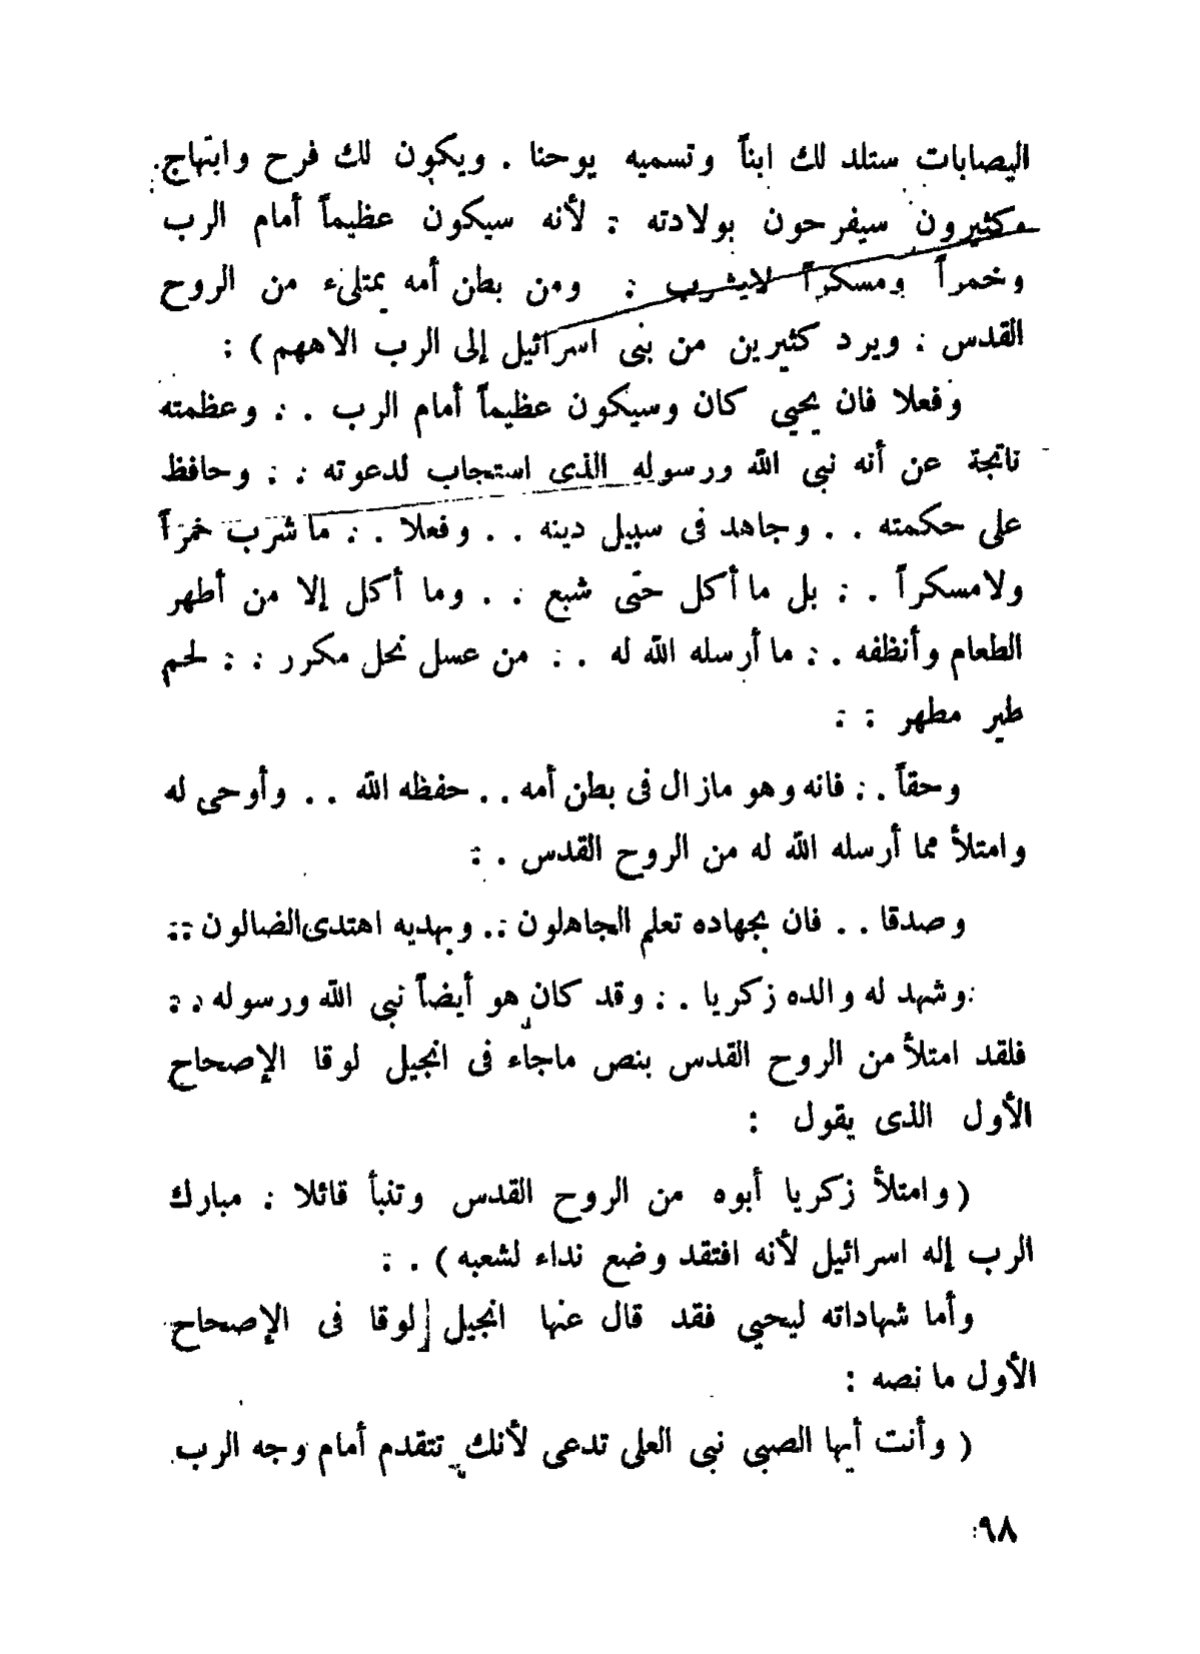 اليصابات ستلد لك ابناً وتسميه يوحنا . ويكون لك فرح وابتهاج.
وكثيرون سيفرحون بولادته : لأنه سيكون عظيماً أمام الرب
وخمراً ومسكراً لايشرب : ومن بطن أمه يمتلىء من الروح
القدس : ويرد كثيرين من بنى اسرائيل إلى الرب الاههم ) :
وفعلا فان يحيي كان وسيكون عظيماً أمام الرب . : وعظمته
ناتجة عن أنه نبى الله ورسوله الذى استجاب لدعوته : : وحافظ
على حكمته . . وجاهد فى سبيل دينه . . وفعلا . : ما شرب خمراً
ولامسكراً . : بل ما أكل حتى شبع : . وما أكل إلا من أطهر
الطعام وأنظفه . : ما أرسله الله له . : من عسل نحل مكرر : : لحم
طير مطهر : :
وحقاً . : فانه وهو مازال فى بطن أمه . . حفظه الله . . وأوحى له
وامتلأ مما أرسله الله له من الروح القدس . :
وصدقا . . فان بجهاده تعلم الجاهلون : . وبهديه اهتدى الضالون : :
وشهد له والده زكريا . : وقد كان هو أيضاً نبى الله ورسوله : :
فلقد امتلأ من الروح القدس بنص ماجاء فى انجيل لوقا الإصحاح
الأول الذى يقول :
( وامتلأ زكريا أبوه من الروح القدس وتنبأ قائلا : مبارك
الرب إله اسرائيل لأنه افتقد وضع نداء لشعبه ) . :
وأما شهاداته ليحيي فقد قال عنها انجيل لوقا فى الإصحاح
الأول ما نصه :
( وأنت أيها الصبى نبى العلى تدعى لأنك تتقدم أمام وجه الرب
٩٨